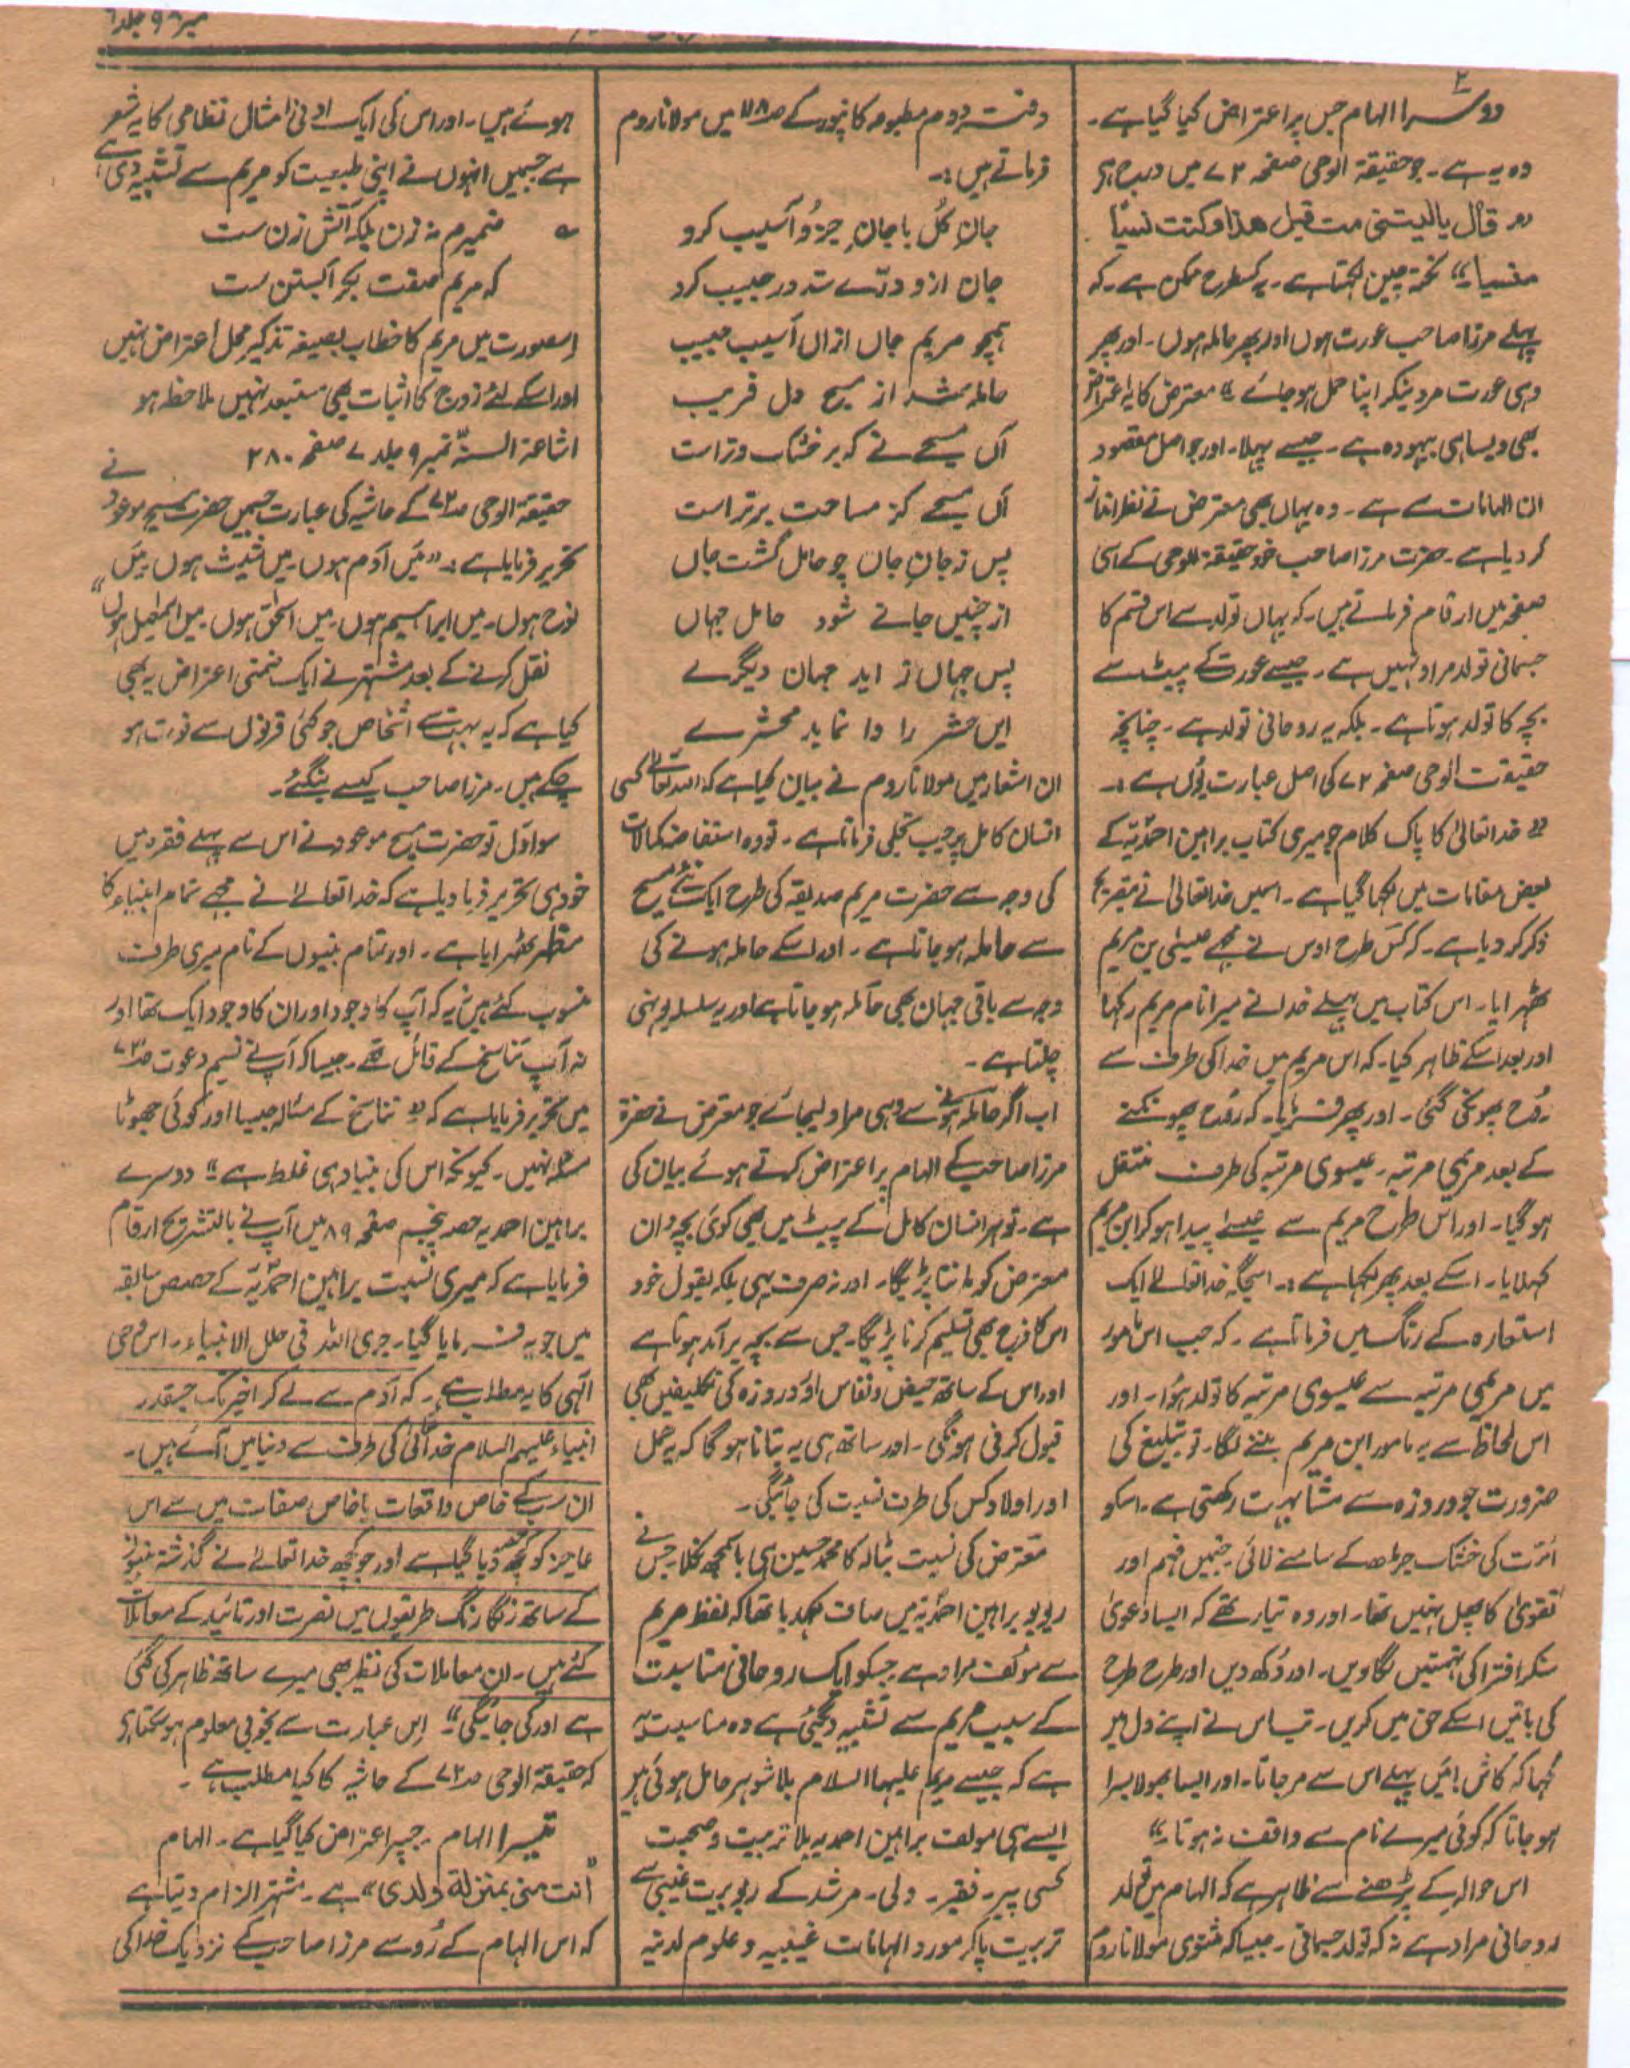 نمبر ۹۶ جلد ۶
۲
دوسرا الہام جس پر اعتراض کیا گیا ہے۔
وہ یہ ہے۔ جو حقیقۃ الوحی صفحہ ۷۲ میں درج ہے
قال یالیتنی مت قبل ھذا وکنت نسیًا
منسیا" نکتہ چین لکہتا ہے۔ یہ کسطرح ممکن ہے۔ کہ
پہلے مرزا صاحب عورت ہوں اور پھر حاملہ ہوں۔ اور پھر
وہی عورت مرد بنکر اپنا حمل ہو جائے" معترض کا یہ اعتراض
بھی ویسا ہی بیہودہ ہے۔ جیسے پہلا۔ اور جو اصل مقصود
ان الہامات سے ہے۔ وہ یہاں بھی معترض نے نظر انداز
کر دیا ہے۔ حضرت مرزا صاحب خود حقیقۃ الوحی کے اسی
صفحہ میں ارقام فرماتے ہیں۔ کہ یہاں تولد سے اس قسم کا
جسمانی تولد مراد نہیں ہے۔ جیسے عورت کے پیٹ سے
بچہ کا تولد ہوتا ہے۔ بلکہ یہ روحانی تولد ہے۔ چنانچہ
حقیقت الوحی صفحہ ۷۲ کی اصل عبارت یوں ہے:۔
"خدا تعالیٰ کا پاک کلام جو میری کتاب براہین احمدیہ کے
بعض مقامات میں لکہا گیا ہے۔ اسمیں خدا تعالیٰ نے بتصریح
ذکر کر دیا ہے۔ کہ کس طرح اوس نے مجھے عیسیٰ بن مریم
ٹھہرایا۔ اس کتاب میں پہلے خدا نے میرا نام مریم رکھا
اور بعد اسکے ظاہر کیا۔ کہ اس مریم میں خدا کی طرف سے
روح پھونکی گئی۔ اور پھر فرمایا۔ کہ روح پھونکنے
کے بعد مریمی مرتبہ۔ عیسوی مرتبہ کی طرف منتقل
ہو گیا۔ اور اس طرح مریم سے عیسیٰ پیدا ہو کر ابن مریم
کہلایا۔ اسکے بعد پھر لکہا ہے:۔ اسجگہ خدا تعالےٰ ایک
استعارہ کے رنگ میں فرماتا ہے۔ کہ جب اس مامور
میں مریمی مرتبہ سے عیسوی مرتبہ کا تولد ہوا۔ اور
اس لحاظ سے یہ مامور ابن مریم بننے لگا۔ تو تبلیغ کی
ضرورت جو دردزہ سے مشابہت رکھتی ہے۔ اسکو
امت کی خشک جڑھ کے سامنے لائی۔ جنمیں فہم اور
تقویٰ کا پھل نہیں تھا۔ اور وہ تیار تھے کہ ایسا دعویٰ
سنکر افترا کی تہمتیں لگاویں۔ اور دکھ دیں اور طرح طرح
کی باتیں اسکے حق میں کریں۔ تب اس نے اپنے دل میں
کہا کہ کاش! میں پہلے اس سے مر جاتا۔ اور ایسا بھولا بسرا
ہو جاتا کہ کوئی میرے نام سے واقف نہ ہوتا"
اس حوالہ کے پڑھنے سے ظاہر ہے کہ الہام میں تولد
روحانی مراد ہے نہ کہ تولد جسمانی۔ جیسا کہ مثنوی مولانا روم
دفتر دوم مطبوعہ کانپور کے میں مولانا روم
فرماتے ہیں:۔
جانِ کُل با جانِ جزو آسیب کرد
جان ازو درے ستد در جیب کرد
ہمچو مریم جاں ازاں آسیب جیب
حاملہ شد از مسیح دل فریب
آں مسیحے نے کہ بر خشک و تر است
آں مسیحے کز مساحت برتر است
پس ز جانِ جان چو حامل گشت جاں
از چنیں جانے شود حامل جہاں
پس جہاں زاید جہان دیگرے
ایں حشر را وا نماید محشرے
ان اشعار میں مولانا روم نے بیان کیا ہے کہ اللہ تعالےٰ کسی
انسان کامل پر جب تجلی فرماتا ہے۔ تو وہ استفاضہ کمالات
کی وجہ سے حضرت مریم صدیقہ کی طرح ایک نئے مسیح
سے حاملہ ہو جاتا ہے۔ اور اسکے حاملہ ہونے کی
وجہ سے باقی جہان بھی حاملہ ہو جاتا ہے اور یہ سلسلہ یونہی
چلتا ہے۔
اب اگر حاملہ ہونے سے وہی مراد لیجائے جو معترض نے حضرۃ
مرزا صاحب کے الہام پر اعتراض کرتے ہوئے بیان کی
ہے۔ تو ہر انسان کامل کے پیٹ میں بھی کوئی بچہ دان
معترض کو ماننا پڑیگا۔ اور نہ صرف یہی بلکہ بقول خود
اس کا فرج بھی تسلیم کرنا پڑیگا۔ جس سے بچہ برآمد ہوتا ہے
اور اس کے ساتھ حیض و نفاس اور دردزہ کی تکلیفیں بھی
قبول کرنی ہونگی۔ اور ساتھ ہی یہ بتانا ہوگا کہ یہ حمل
اور اولاد کس کی طرف نسبت کی جائیگی۔
معترض کی نسبت بٹالہ کا محمد حسین ہی با سمجھ نکلا جس نے
ریویو براہین احمدیہ میں صاف لکھدیا تھا کہ لفظ مریم
سے مؤلف مراد ہے جسکو ایک روحانی مناسبت
کے سبب مریم سے تشبیہ دیگئی ہے وہ مناسبت یہ
ہے کہ جیسے مریم علیہا السلام بلا شوہر حامل ہوئی ہیں
ایسے ہی مولف براہین احمدیہ بلا تربیت و صحبت
کسی پیر۔ فقیر۔ ولی۔ مرشد کے ربوبیت غیبی سے
تربیت پا کر مورد الہامات غیبیہ و علوم لدنیہ
ہوئے ہیں۔ اور اس کی ایک ادنیٰ امثال نظامی کا یہ شعر
ہے جسمیں انہوں نے اپنی طبیعت کو مریم سے تشبیہ دی ہے
ضمیرم نہ زن بلکہ آتش زن ست
کہ مریم صفت بکر آبستن ست
اِس صورت میں مریم کا خطاب بصیغہ تذکیر محل اعتراض نہیں
اور اسکے لئے زوج کا اثبات بھی مستبعد نہیں ملاحظہ ہو
اشاعۃ السنۃ نمبر ۹ جلد ۷ صفحہ ۲۸۰ نے
حقیقۃ الوحی کے حاشیہ کی عبارت جسمیں حضرت مسیح موعود
تحریر فرمایا ہے:۔ "میں آدم ہوں میں شیث ہوں میں
نوح ہوں۔ میں ابراہیم ہوں میں اسحٰق ہوں میں اسمٰعیل ہوں"
نقل کرنے کے بعد مشتہر نے ایک ضمنی اعتراض یہ بھی
کیا ہے کہ یہ بہت سے اشخاص جو کئی قرنوں سے فوت ہو
چکے ہیں۔ مرزا صاحب کیسے بنگئے۔
سو اول تو حضرت مسیح موعود نے اس سے پہلے فقرہ میں
خود ہی تحریر فرما دیا ہے کہ خدا تعالےٰ نے مجھے تمام انبیاء کا
مظہر ٹھہرایا ہے۔ اور تمام نبیوں کے نام میری طرف
منسوب کئے ہیں نہ یہ کہ آپ کا وجود اور ان کا وجود ایک تھا اور
نہ آپ تناسخ کے قائل تھے۔ جیسا کہ آپ نے نسیم دعوت
میں تحریر فرمایا ہے کہ "تناسخ کے مسئلہ جیسا اور کوئی جھوٹا
مسئلہ نہیں۔ کیونکہ اس کی بنیاد ہی غلط ہے" دوسرے
براہین احمدیہ حصہ پنجم صفحہ ۸۹ میں آپ نے بالتشریح ارقام
فرمایا ہے کہ میری نسبت براہین احمدیہ کے حصص سابقہ
میں جو یہ فرمایا گیا۔ جری اللہ فی حلل الانبیاء۔ اس وحی
الٰہی کا یہ مطلب ہے۔ کہ آدم سے لے کر اخیر تک جسقدر
انبیاء علیہم السلام خدا تعالیٰ کی طرف سے دنیا میں آئے ہیں۔
ان سب کے خاص واقعات یا خاص صفات میں سے اس
عاجز کو کچھ حصہ دیا گیا ہے اور جو کچھ خدا تعالےٰ نے گذشتہ نبیوں
کے ساتھ رنگا رنگ طریقوں میں نصرت اور تائید کے معاملات
کئے ہیں۔ ان معاملات کی نظیر بھی میرے ساتھ ظاہر کی گئی
ہے اور کی جائیگی" اِس عبارت سے بخوبی معلوم ہو سکتا ہے
کہ حقیقۃ الوحی کے حاشیہ کا کیا مطلب ہے۔
تیسرا الہام جسپر اعتراض کیا گیا ہے۔ الہام
"انت منی بمنزلۃ ولدی" ہے۔ مشتہر الزام دیتا ہے
کہ اس الہام کے رو سے مرزا صاحب کے نزدیک خدا کی